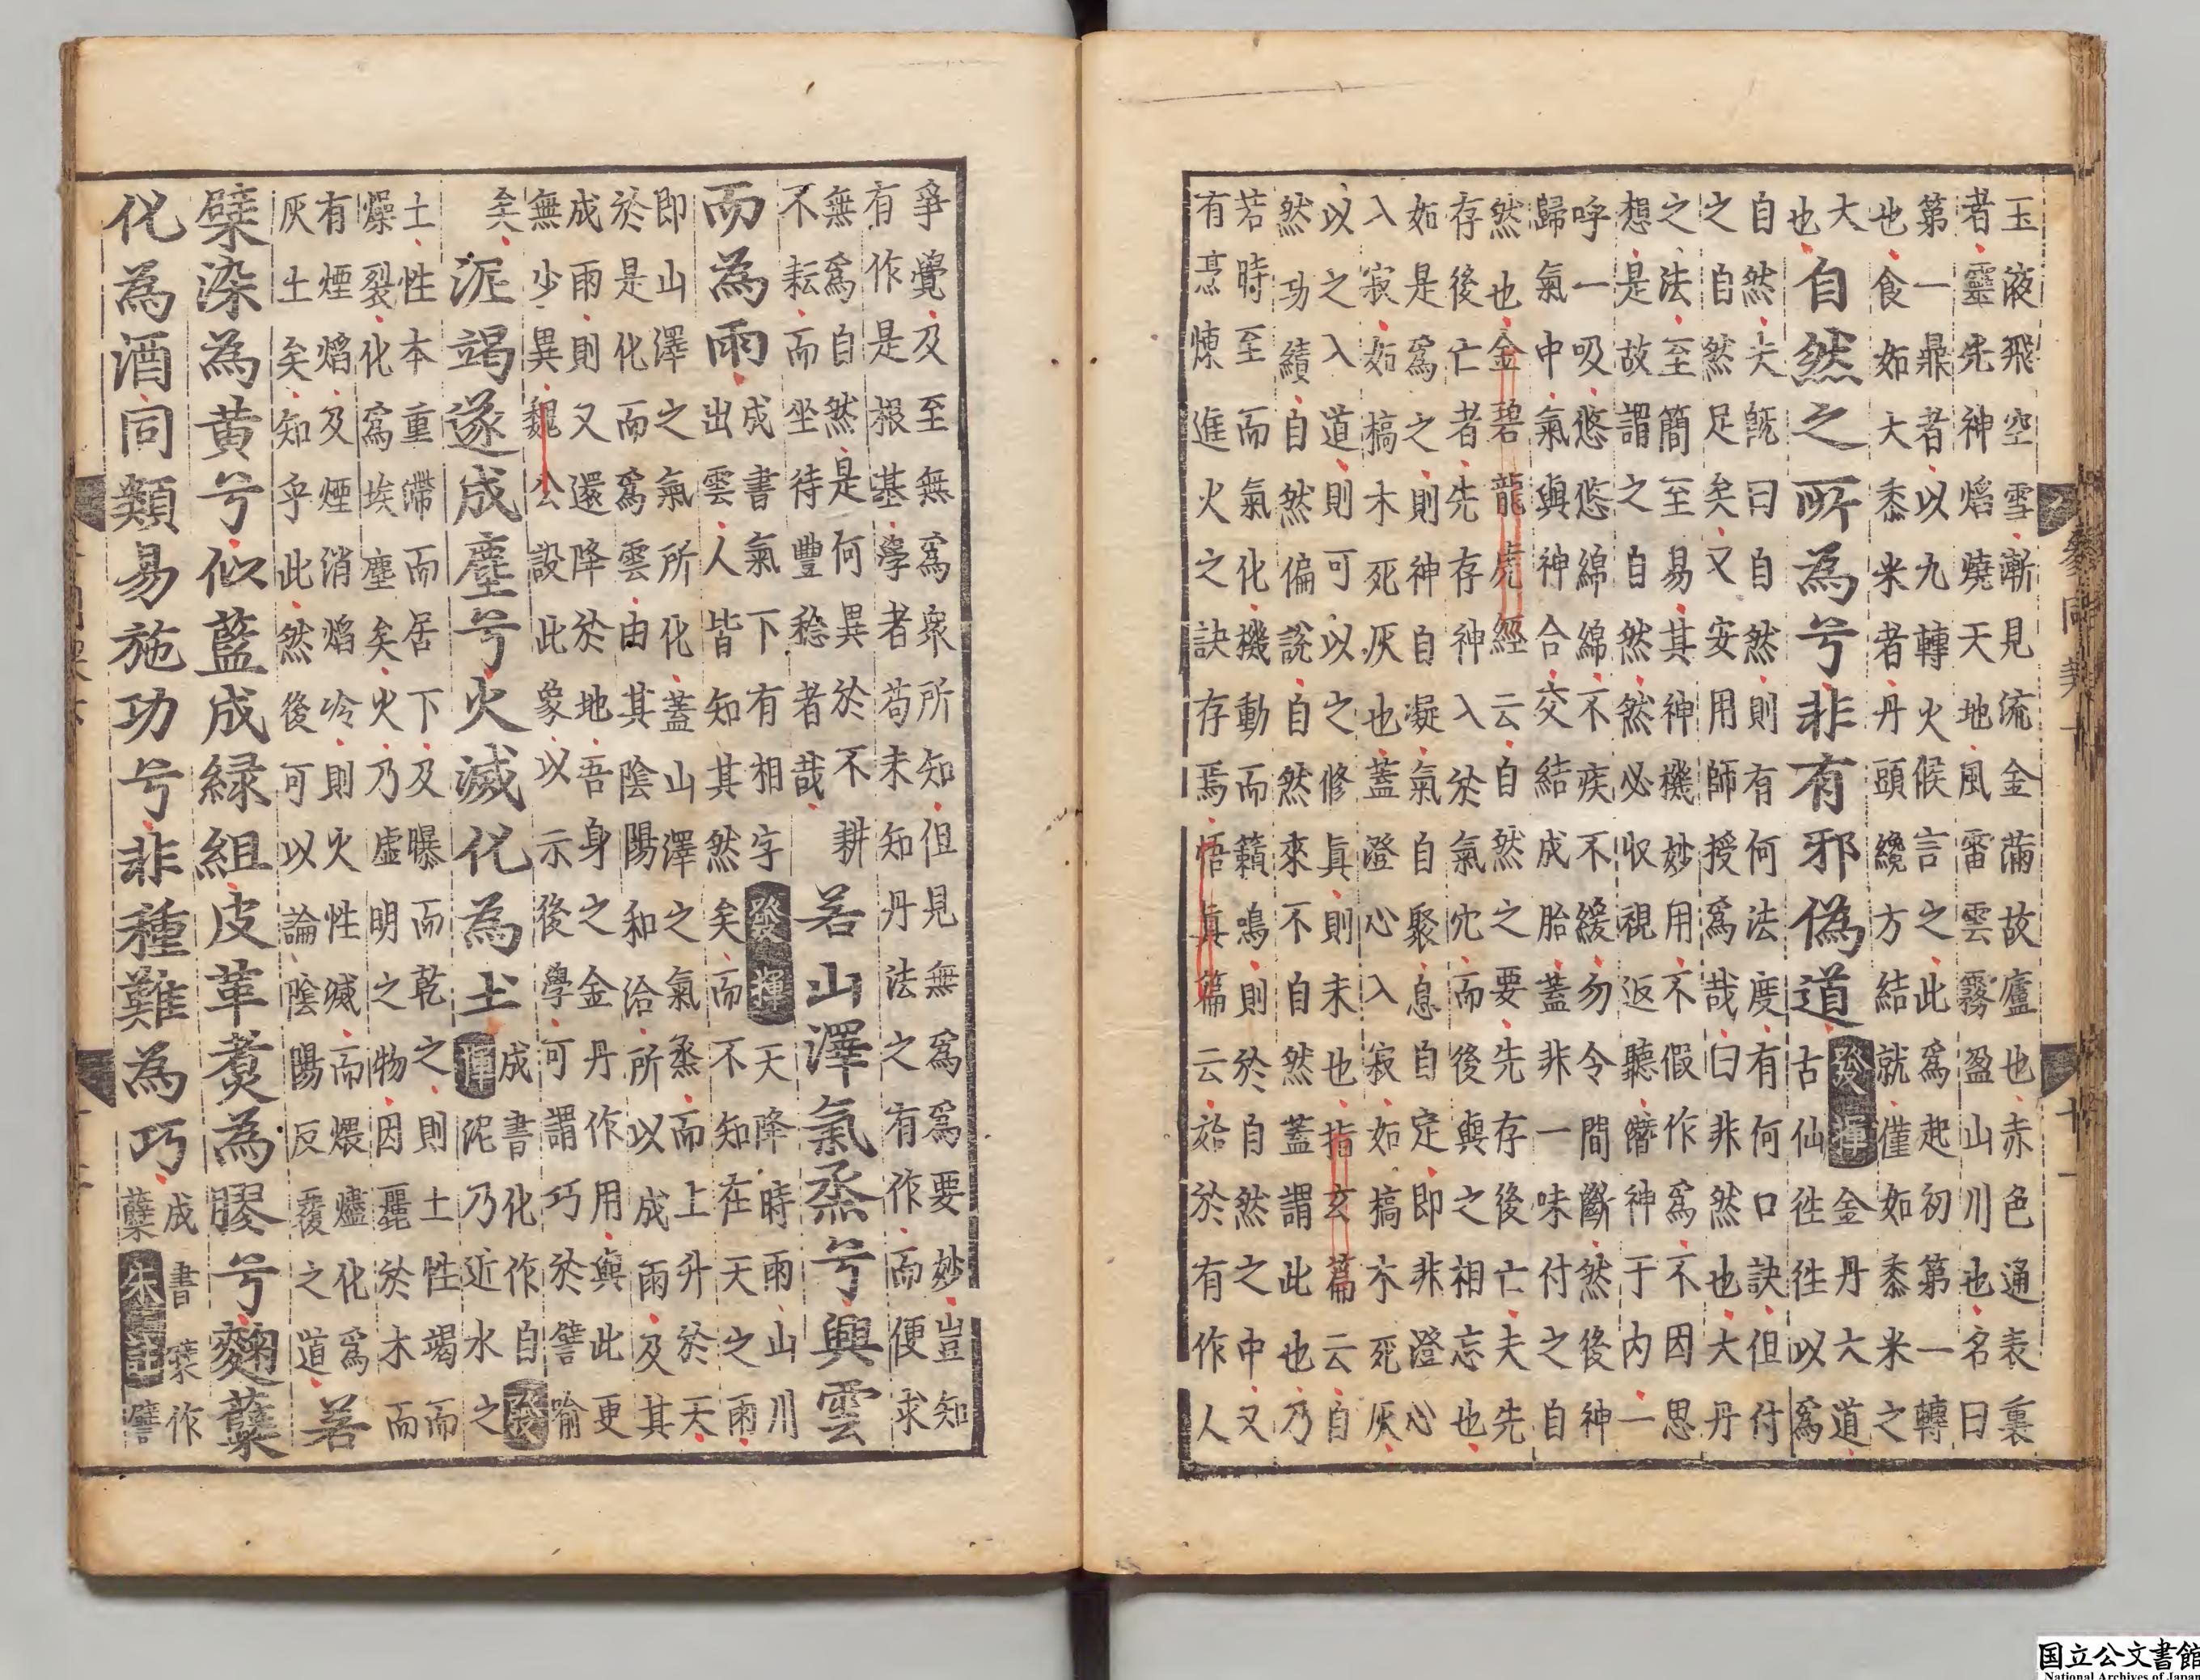 玉液飛空雪漸見流金滿故廬也赤色通表裏
者靈先神焰燒天地風雷雲霧盈山川也名曰
第一鼎者以九轉火候言之此爲起初第一轉
也食如大黍米者丹頭纔方結就僅如黍米之
大也
自然之所為兮非有邪偽道
發揮
金丹大道
古仙徃徃以爲
自然夫旣曰自然則有何法度有何口訣但付
之自然足矣又安用師授爲哉曰非然也大丹
之法至簡至易其神機妙用不假作爲不因思
想是故謂之自然然必收視返聽神于内一
呼一吸悠悠綿綿不疾不緩勿令間斷然後神
歸氣中氣與神合交結成胎蓋非一味付之自
然也金碧龍虎經云自然之要先存後亡夫先
存後亡者先存神入於氣穴而後與之相忘也
如是爲之則神自凝氣自聚息自定即非澄心
入寂如槁木死灰也蓋澄心入寂如槁木死灰
以之入道則可以之修眞則未也指玄篇云自
然功績自然偏說自然來不自然蓋謂此也乃
若時至而氣化機動而籟鳴則於自然之中又
有烹煉進火之訣存焉悟眞篇云始於有作人
爭覺及至無爲衆所知但見無爲爲要妙豈知
有作是根基學者苟未知丹法之有作而便求
無爲自然是何異於不耕
不耘而坐待豐稔者哉
若山澤氣烝兮興雲
而為雨
成書氣下有相字
發揮
天降時雨山川
出雲人皆知其然矣而不知在天之雨
即山澤之氣所化蓋山澤之氣烝而上升於天
於是化而爲雲由其陰陽和洽所以成雨及其
成雨則又還降於地吾身之金丹作用與此更
無少異魏公設此象以示後學可謂巧於譬喻
矣
泥竭遂成塵兮火滅化為土
成書化作自發
揮泥乃近水之
土性本重滯而居下及曝而乾之則土性竭而
燥裂化爲埃塵矣火乃虛明之物因麗於木而
有煙焰及煙消焰冷則火性滅而煨燼化爲
灰土矣知乎此然後可以論陰陽反覆之道
若
檗染為黃兮似藍成緑組皮革煑為膠兮麴糵
化為酒同類易施功兮非種難為巧
成書糵作
櫱朱註譬
参同契
十一
国立公文書館
National Archives of Japan